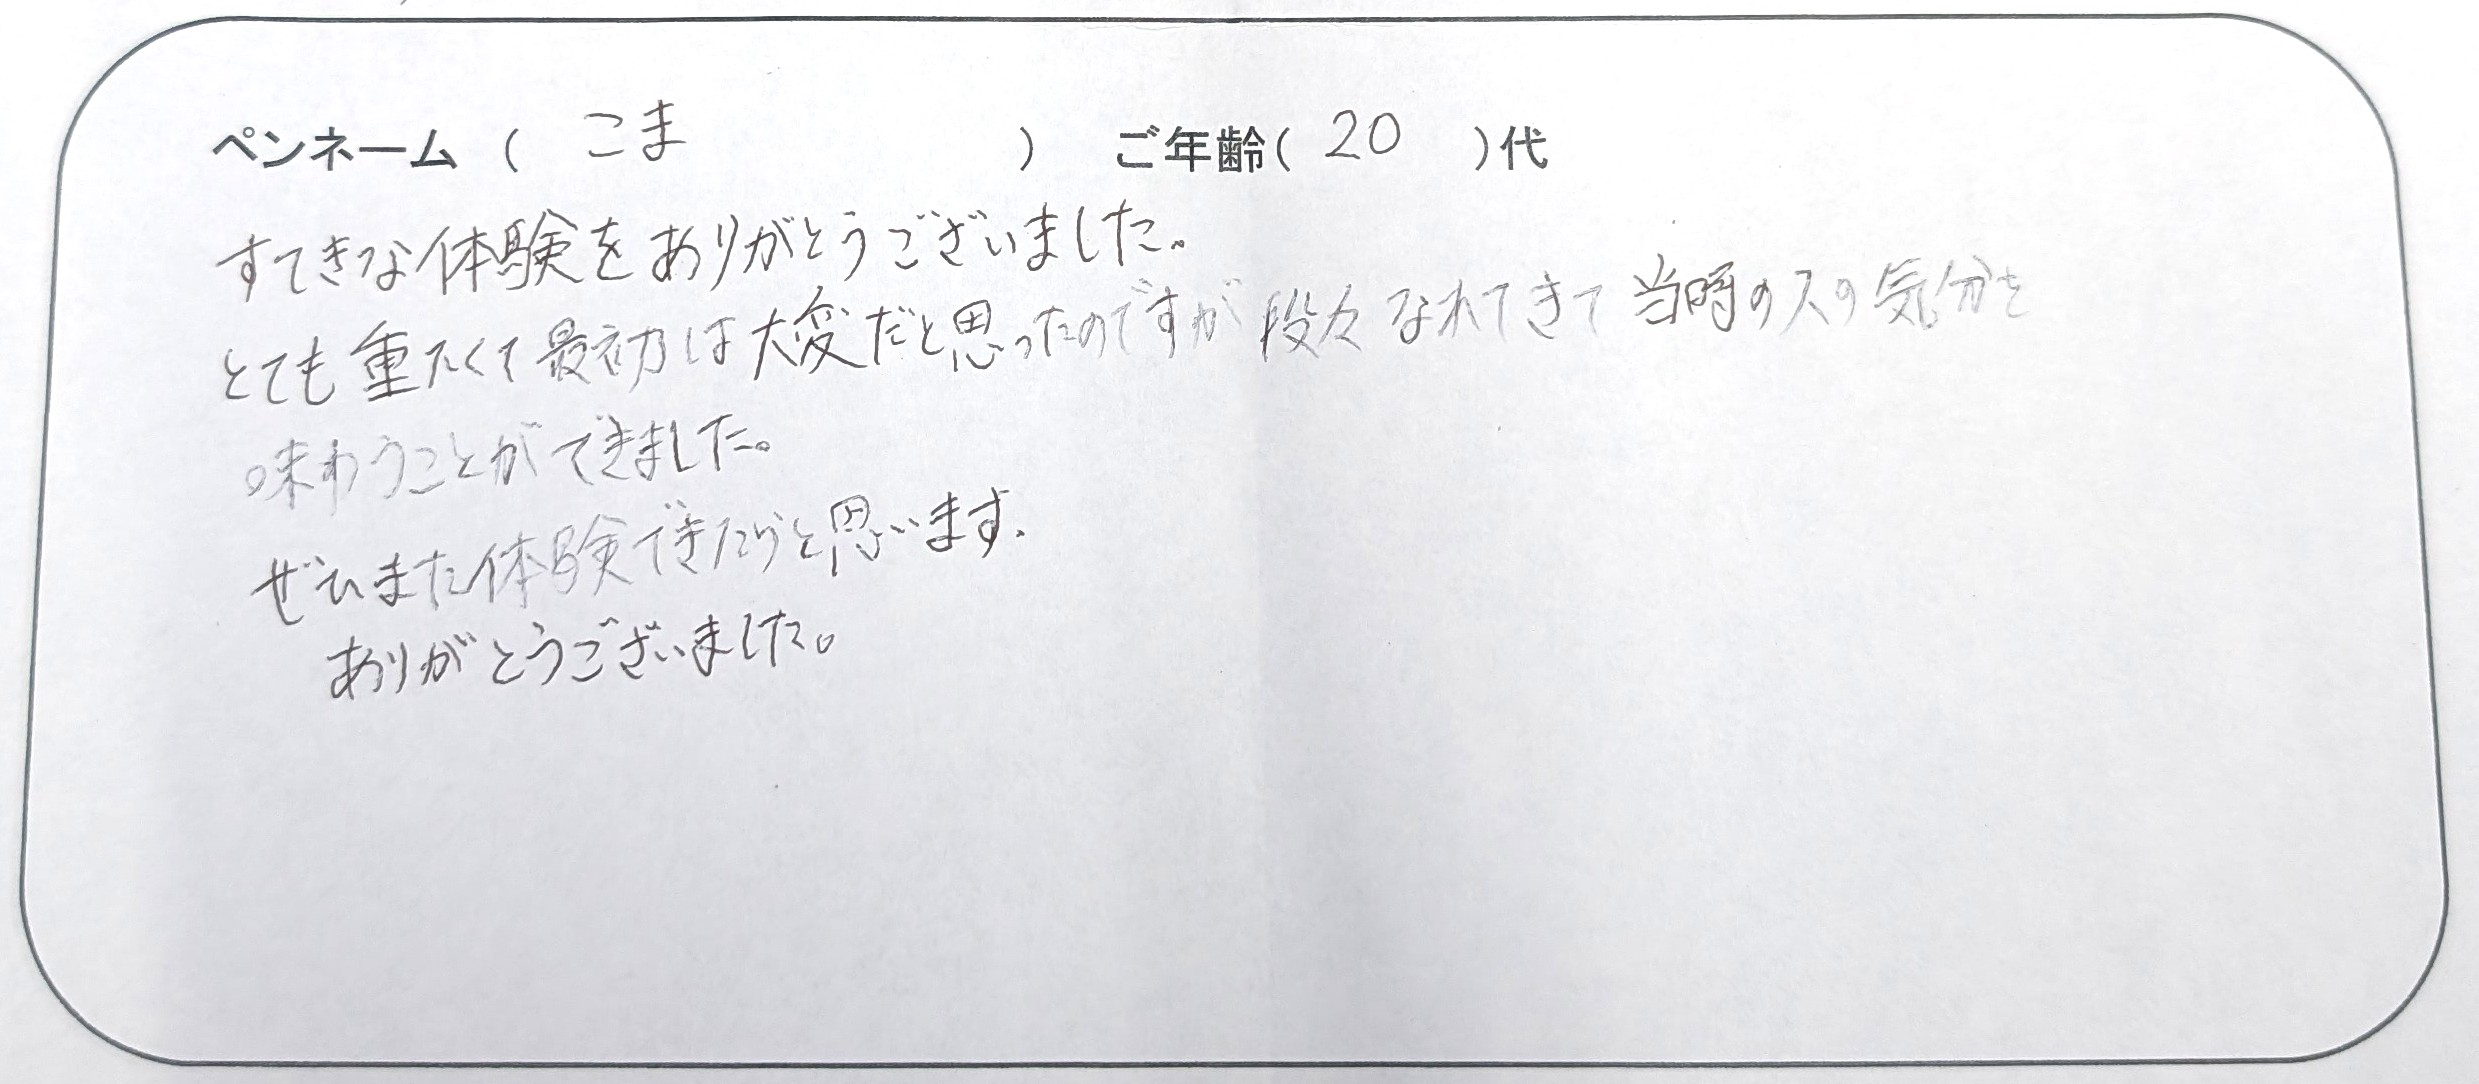 ペンネーム ( こま ) ご年齢( 20 )代
すてきな体験をありがとうございました。
とても重たくて最初は大変だと思ったのですが段々なれてきて当時の人の気分を
味わうことができました。
ぜひまた体験できたらと思います.
ありがとうございました。